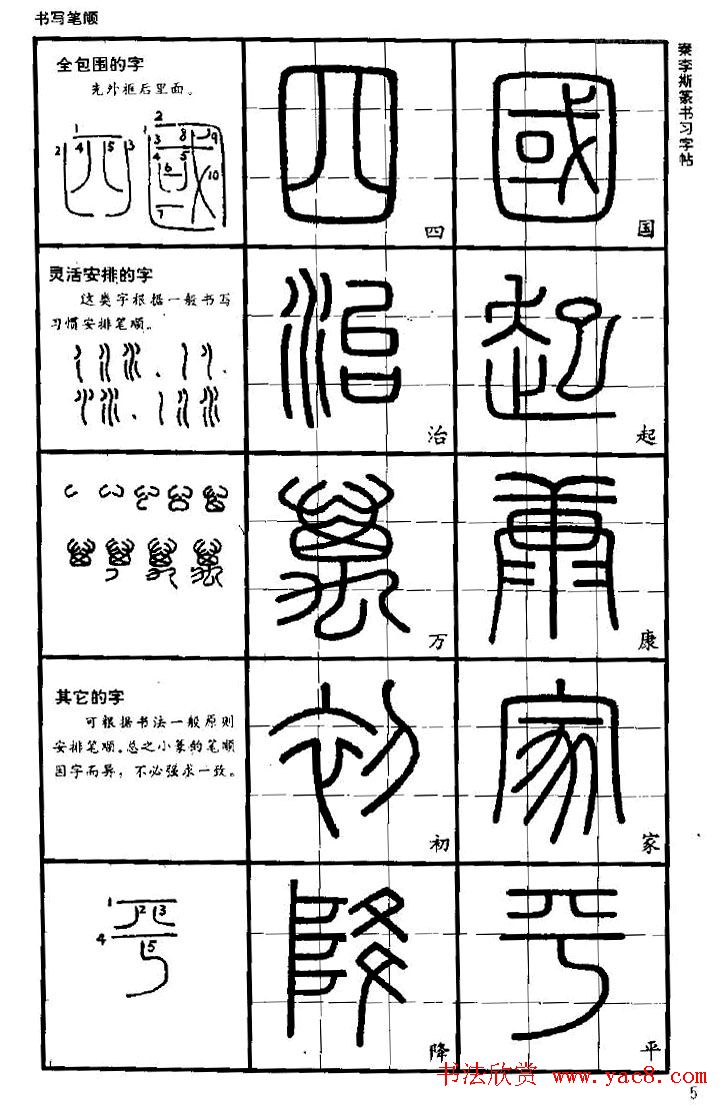 书写笔顺
秦李斯篆书习字帖
全包围的字
先外框后里面。
1
2 4 5 3
2
1 3 8 9
4 5
6 10
7
四
国
灵活安排的字
这类字根据一般书写
习惯安排笔顺。
治
起
万
康
其它的字
可根据书法一般原则
安排笔顺。总之小篆的笔顺
因字而异，不必强求一致。
初
家
1
2 3
4
5
降
平
书法欣赏 www.yac8.com
5